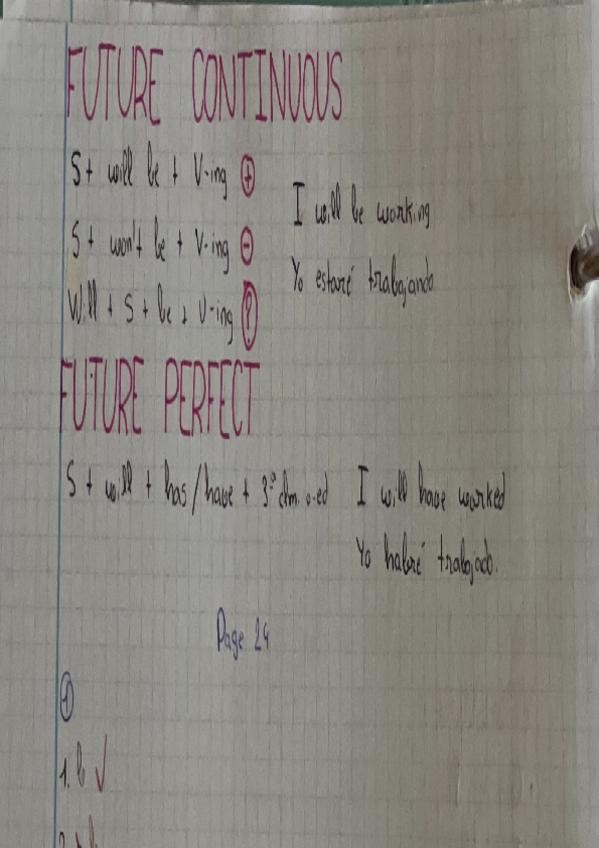 FUTURE CONTINUOUS
S + will be + V-ing (+)
I will be working
S + won't be + V-ing (-)
Yo estaré trabajando
Will + S + be + V-ing (?)
FUTURE PERFECT
S + will + has/have + 3ª clm. o-ed
I will have worked
Yo habré trabajado.
Page 24
1
1. b ✓